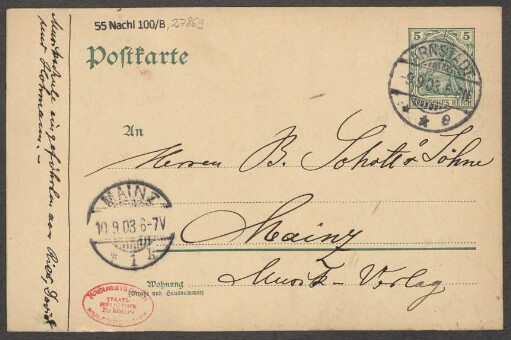 55 Nachl 100/B, 27869
Postkarte
5 5
DEUTSCHES REICH
ARNSTADT
9.9.03.
* * e
An
Herren B. Schott's Söhne
Mainz
Musik-Verlag
MAINZ
10.9.03 6-7V
* 1 k
Wohnung
(Straße und Hausnummer)
STAATS-
BIBLIOTHEK
ZU BERLIN
Musikschule eingeführten von Ries, David
und Hohmann. –